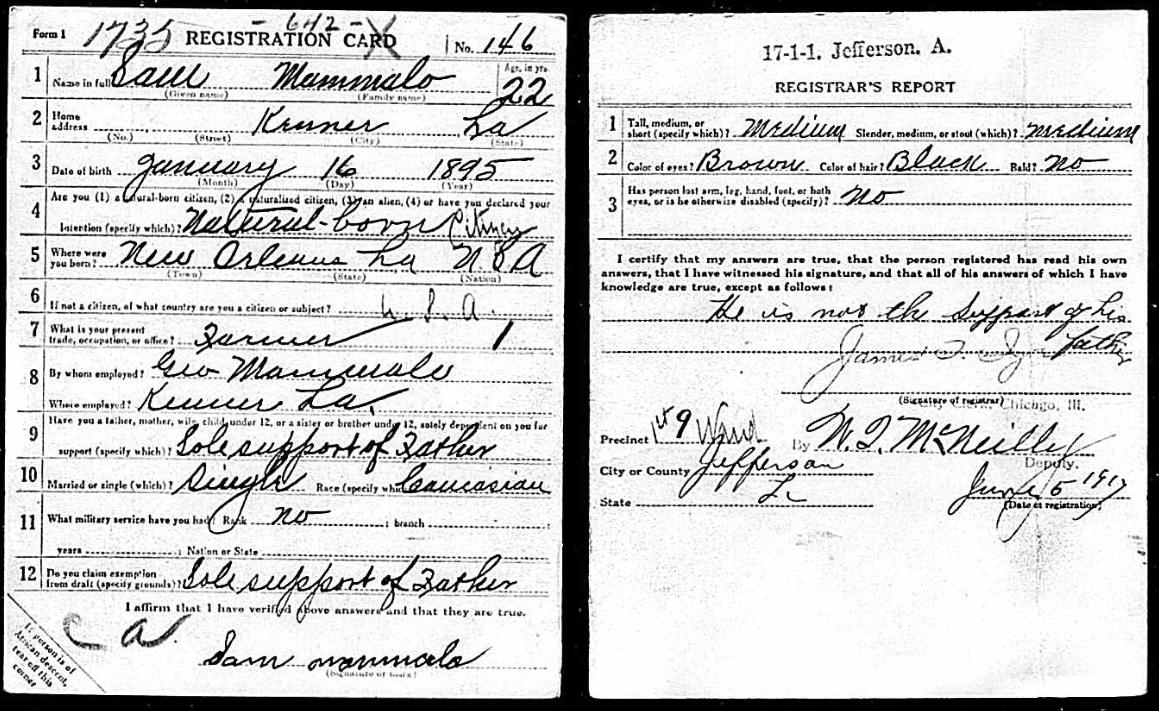 Form 1 1735 - 642 - X
REGISTRATION CARD No. 146
1 Name in full Sam Mammalo Age, in yrs. 22
(Given name) (Family name)
2 Home address Kenner La
(No.) (Street) (City) (State)
3 Date of birth January 16 1895
(Month) (Day) (Year)
4 Are you (1) a natural-born citizen, (2) a naturalized citizen, (3) an alien, (4) or have you declared your
intention (specify which)? Natural-born Citizen
5 Where were you born? New Orleans La U S A
(Town) (State) (Nation)
6 If not a citizen, of what country are you a citizen or subject? U. S. A.
7 What is your present trade, occupation, or office? Farmer 1
8 By whom employed? Geo Mammalo
Where employed? Kenner La.
9 Have you a father, mother, wife, child under 12, or a sister or brother under 12, solely dependent on you for
support (specify which)? Sole support of Father
10 Married or single (which)? Single Race (specify which)? Caucasian
11 What military service have you had? Rank no ; branch
years ; Nation or State
12 Do you claim exemption from draft (specify grounds)? Sole support of Father
I affirm that I have verified above answers and that they are true.
a
Sam mammalo
(Signature or mark)
If person is of
African descent,
tear off this
corner
17-1-1. Jefferson. A.
REGISTRAR'S REPORT
1 Tall, medium, or short (specify which)? Medium Slender, medium, or stout (which)? medium
2 Color of eyes? Brown Color of hair? Black Bald? No
3 Has person lost arm, leg, hand, foot, or both
eyes, or is he otherwise disabled (specify)? No
I certify that my answers are true, that the person registered has read his own
answers, that I have witnessed his signature, and that all of his answers of which I have
knowledge are true, except as follows:
He is not the Support of his
father
James
(Signature of registrar)
Chicago, Ill.
Precinct 1st 9 Ward By N. J. McNeilly
Deputy.
City or County Jefferson
State La June 5 1917
(Date of registration)